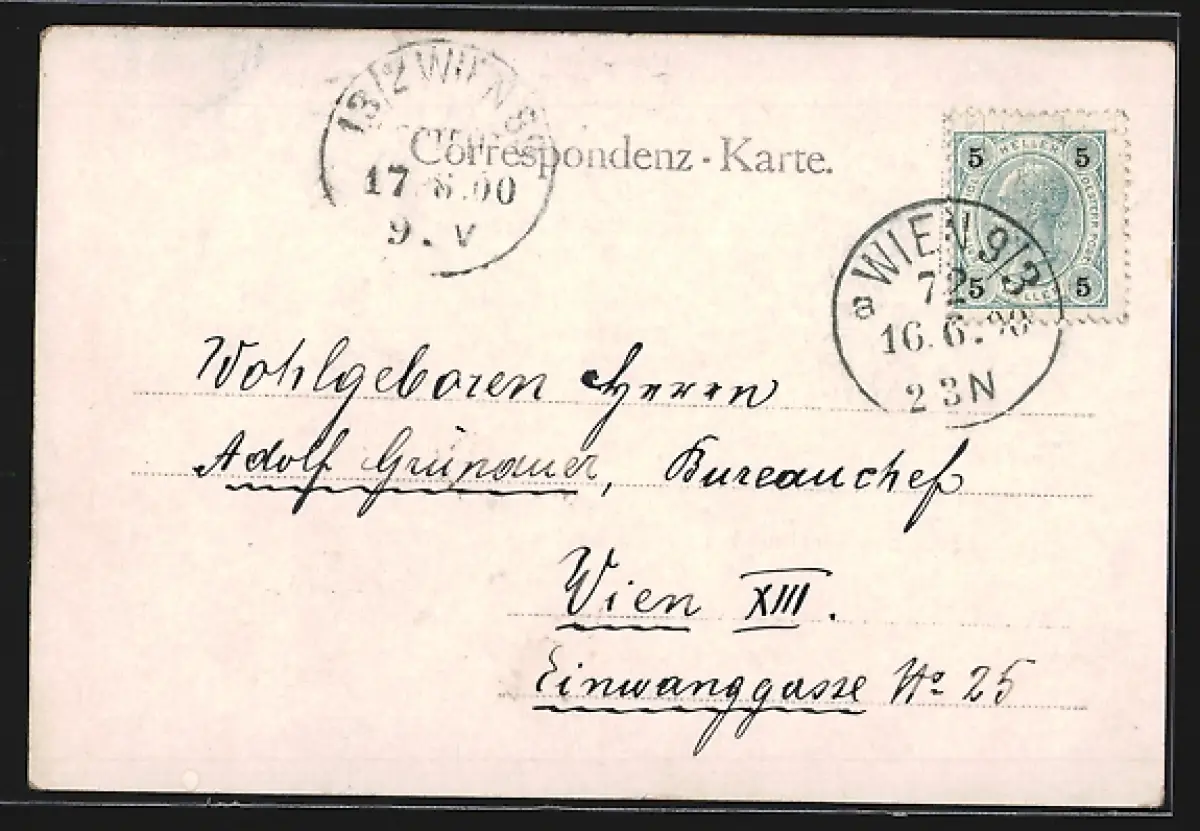 13/2 WIEN
17.6.00
9. V
Correspondenz-Karte.
5 HELLER 5
5 5
a WIEN 9/3
72
16.6.00
2 3 N
Wohlgeboren Herrn
Adolf Grünauer, Bureauchef
Wien XIII.
Einwanggasse No 25